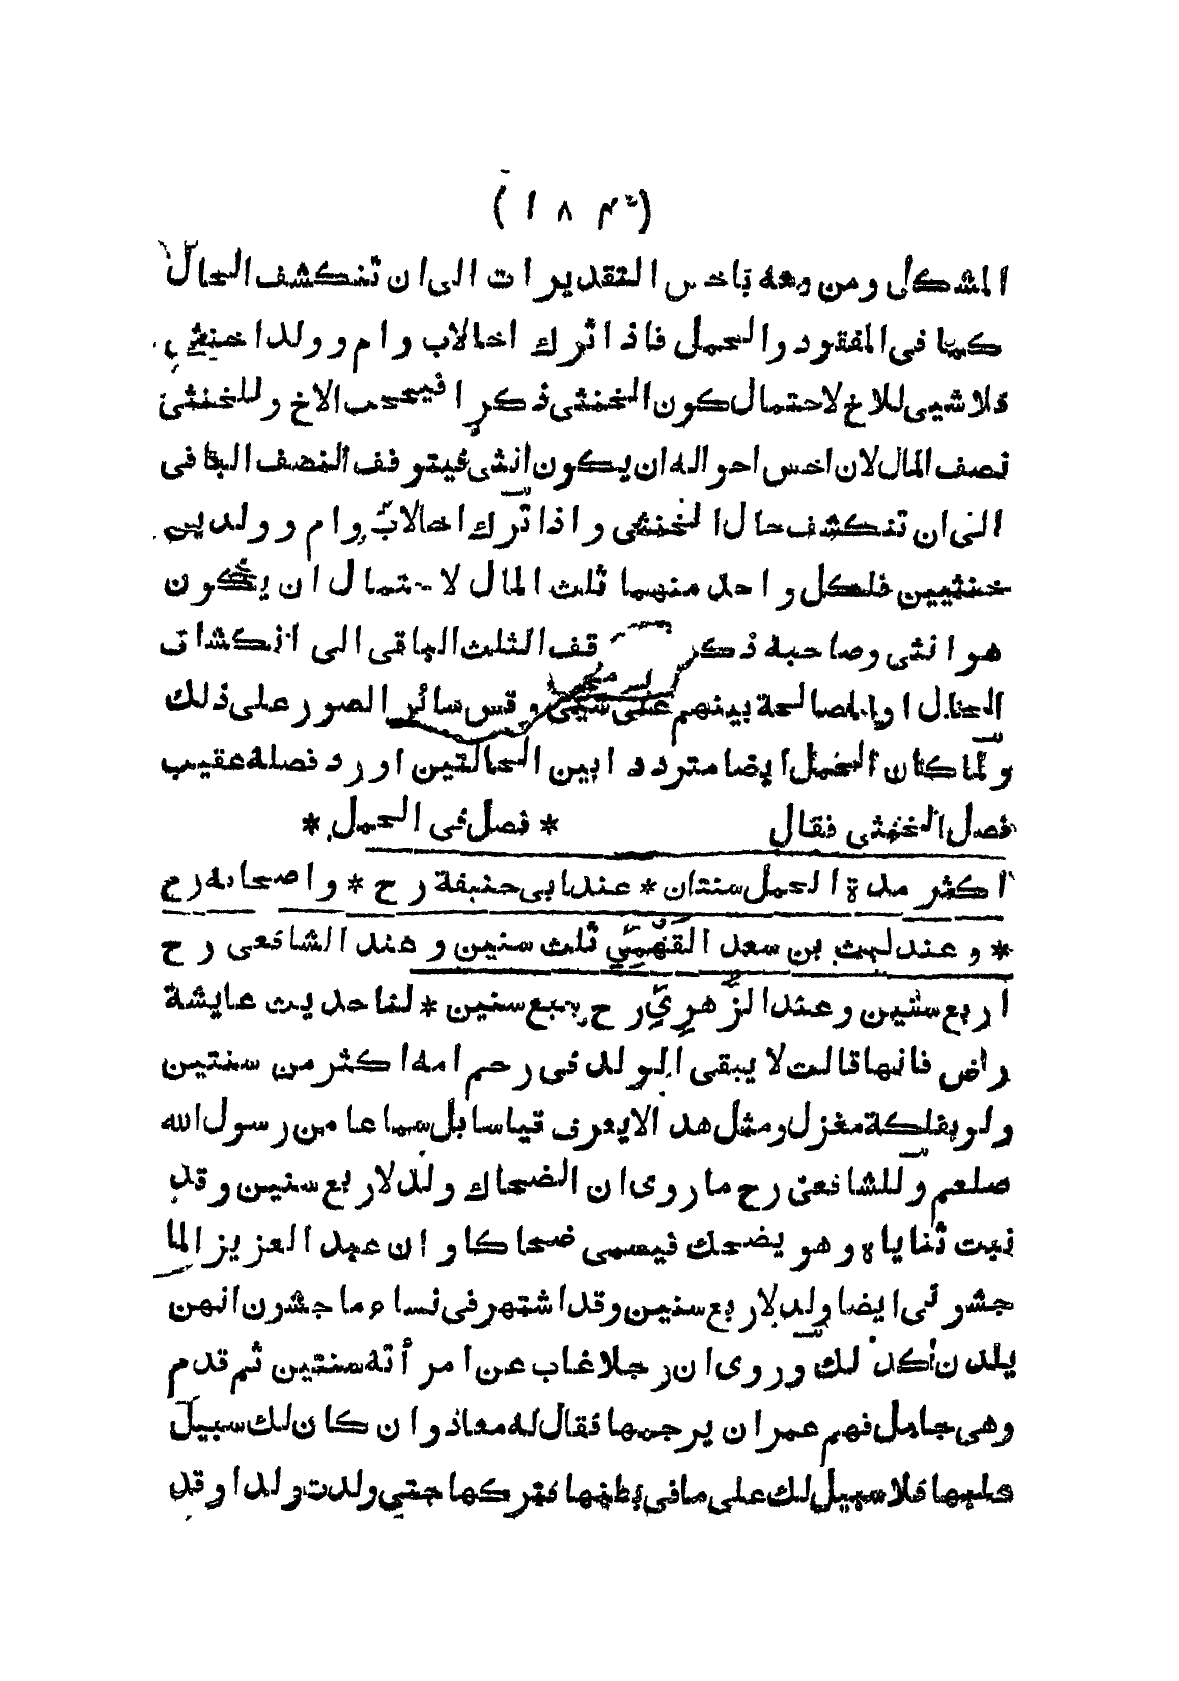 (١٨٤)
المشكل ومن معه باخس التقديرات الى ان تنكشف الحال
كما فى المفقود والحمل فاذا ترك اخالاب وام وولدا خنثى
فلا شيى للاخ لاحتمال كون الخنثى ذكرا فيحجب الاخ وللخنثى
نصف المال لان اخس احواله ان يكون انثى فيتوقف النصف الباقى
الى ان تنكشف حال الخنثى واذا ترك اخالاب وام وولدين
خنثيين فلكل واحد منهما ثلث المال لاحتمال ان يكون
هو انثى وصاحبه ذكر قف الثلث الباقى الى انكشاف
الحال او المصالحة بينهم على شيى وقس سائر الصور على ذلك
ولما كان الحمل ايضا مترددا بين الحالتين اورد فصله عقيب
فصل الخنثى فقال * فصل فى الحمل *
اكثر مدة الحمل سنتان * عند ابى حنيفة رح * واصحابه رح
* وعند ليث بن سعد الفهمي ثلث سنين وعند الشافعى رح
اربع سنين وعند الزهري رح سبع سنين * لنا حديث عايشة
رض فانها قالت لا يبقى الولد فى رحم امه اكثر من سنتين
ولو بفلكة مغزل ومثل هذا لايعرف قياسا بل سماعا من رسول الله
صلعم وللشافعى رح ما روى ان الضحاك ولد لاربع سنين وقد
نبت ثناياه وهو يضحك فيسمى ضحاكا وان عبد العزيز الما
جشونى ايضا ولد لاربع سنين وقد اشتهر فى نساء ماجشون انهن
يلدن كذلك وروى ان رجلا غاب عن امرأته سنتين ثم قدم
وهى حامل فهم عمر ان يرجمها فقال له معاذ وان كان لك سبيل
عليها فلا سبيل لك على ما فى بطنها فتركها حتى ولدت ولدا وقد